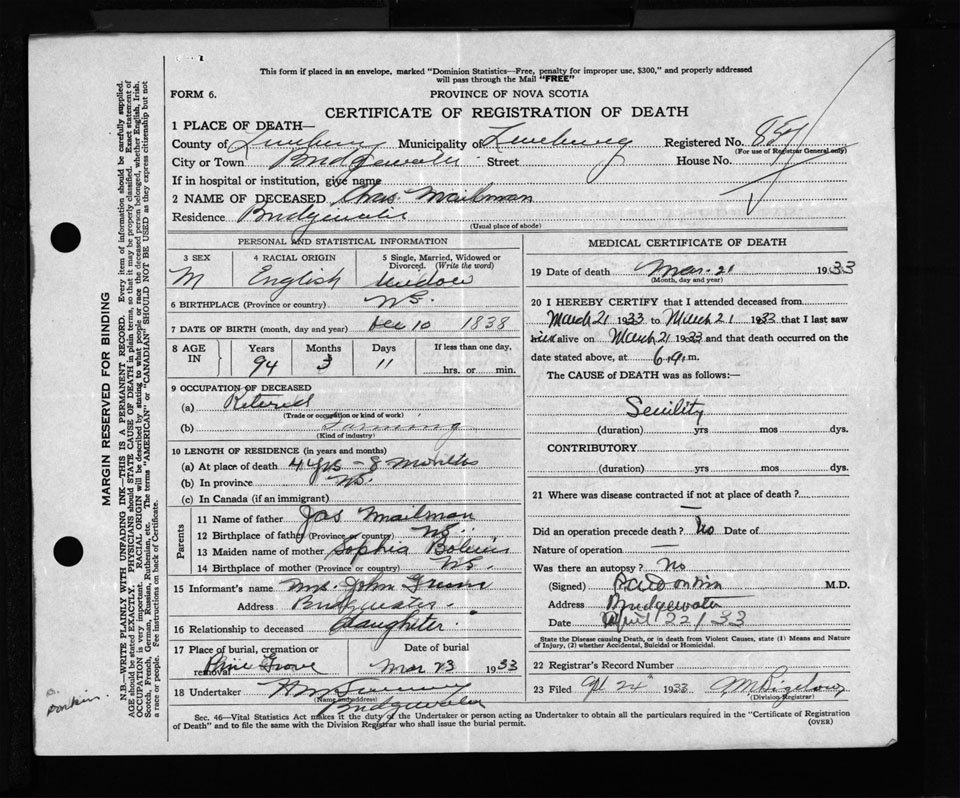 This form if placed in an envelope, marked "Dominion Statistics—Free, penalty for improper use, $300," and properly addressed
will pass through the Mail "FREE"
FORM 6.
PROVINCE OF NOVA SCOTIA
CERTIFICATE OF REGISTRATION OF DEATH
1 PLACE OF DEATH—
County of Lunenburg Municipality of Lunenburg Registered No.
(For use of Registrar General only)
City or Town Bridgewater Street House No.
If in hospital or institution, give name
2 NAME OF DECEASED Chas Mailman
Residence Bridgewater
(Usual place of abode)
PERSONAL AND STATISTICAL INFORMATION
3 SEX 4 RACIAL ORIGIN 5 Single, Married, Widowed or
Divorced. (Write the word)
M English Widow
6 BIRTHPLACE (Province or country) N S.
7 DATE OF BIRTH (month, day and year) Dec 10 1838
8 AGE IN Years Months Days If less than one day,
94 3 11 hrs. or min.
9 OCCUPATION OF DECEASED
(a) Retired
(Trade or occupation or kind of work)
(b) Farming
(Kind of industry)
10 LENGTH OF RESIDENCE (in years and months)
(a) At place of death 4 yrs - 8 months
(b) In province N S.
(c) In Canada (if an immigrant)
Parents
11 Name of father Jas Mailman
12 Birthplace of father (Province or country) N S.
13 Maiden name of mother Sophia
14 Birthplace of mother (Province or country) N S.
15 Informant's name Mrs. John
Address Bridgewater.
16 Relationship to deceased daughter.
17 Place of burial, cremation or
removal Pine Grove
Date of burial
Mar 23 1933
18 Undertaker
(Name and address)
Bridgewater
MEDICAL CERTIFICATE OF DEATH
19 Date of death Mar. 21 1933
(Month, day and year)
20 I HEREBY CERTIFY that I attended deceased from
March 21 1933 to March 21 1933 that I last saw
alive on March 21 1933 and that death occurred on the
date stated above, at 6 a. m.
The CAUSE of DEATH was as follows:—
Senility
(duration) yrs mos dys.
CONTRIBUTORY
(duration) yrs mos dys.
21 Where was disease contracted if not at place of death?
—
Did an operation precede death? No Date of
Nature of operation —
Was there an autopsy? No
(Signed) M.D.
Address Bridgewater
Date April 22/33
State the Disease causing Death, or in death from Violent Causes, state (1) Means and Nature
of Injury, (2) whether Accidental, Suicidal or Homicidal.
22 Registrar's Record Number
23 Filed Apl 24th 1933
(Division Registrar)
Sec. 46—Vital Statistics Act makes it the duty of the Undertaker or person acting as Undertaker to obtain all the particulars required in the "Certificate of Registration
of Death" and to file the same with the Division Registrar who shall issue the burial permit.
(OVER)
MARGIN RESERVED FOR BINDING
N.B.—WRITE PLAINLY WITH UNFADING INK—THIS IS A PERMANENT RECORD. Every item of information should be carefully supplied.
AGE should be stated EXACTLY. PHYSICIANS should STATE CAUSE OF DEATH in plain terms, so that it may be properly classified. Exact statement of
OCCUPATION is very important. RACIAL ORIGIN will be described by stating to what people or race the deceased person belonged, whether English, Irish,
Scotch, French, German, Russian, Ruthenian, etc. The terms "AMERICAN" or "CANADIAN" SHOULD NOT BE USED as they express citizenship but not
a race or people. Fee instructions on back of Certificate.